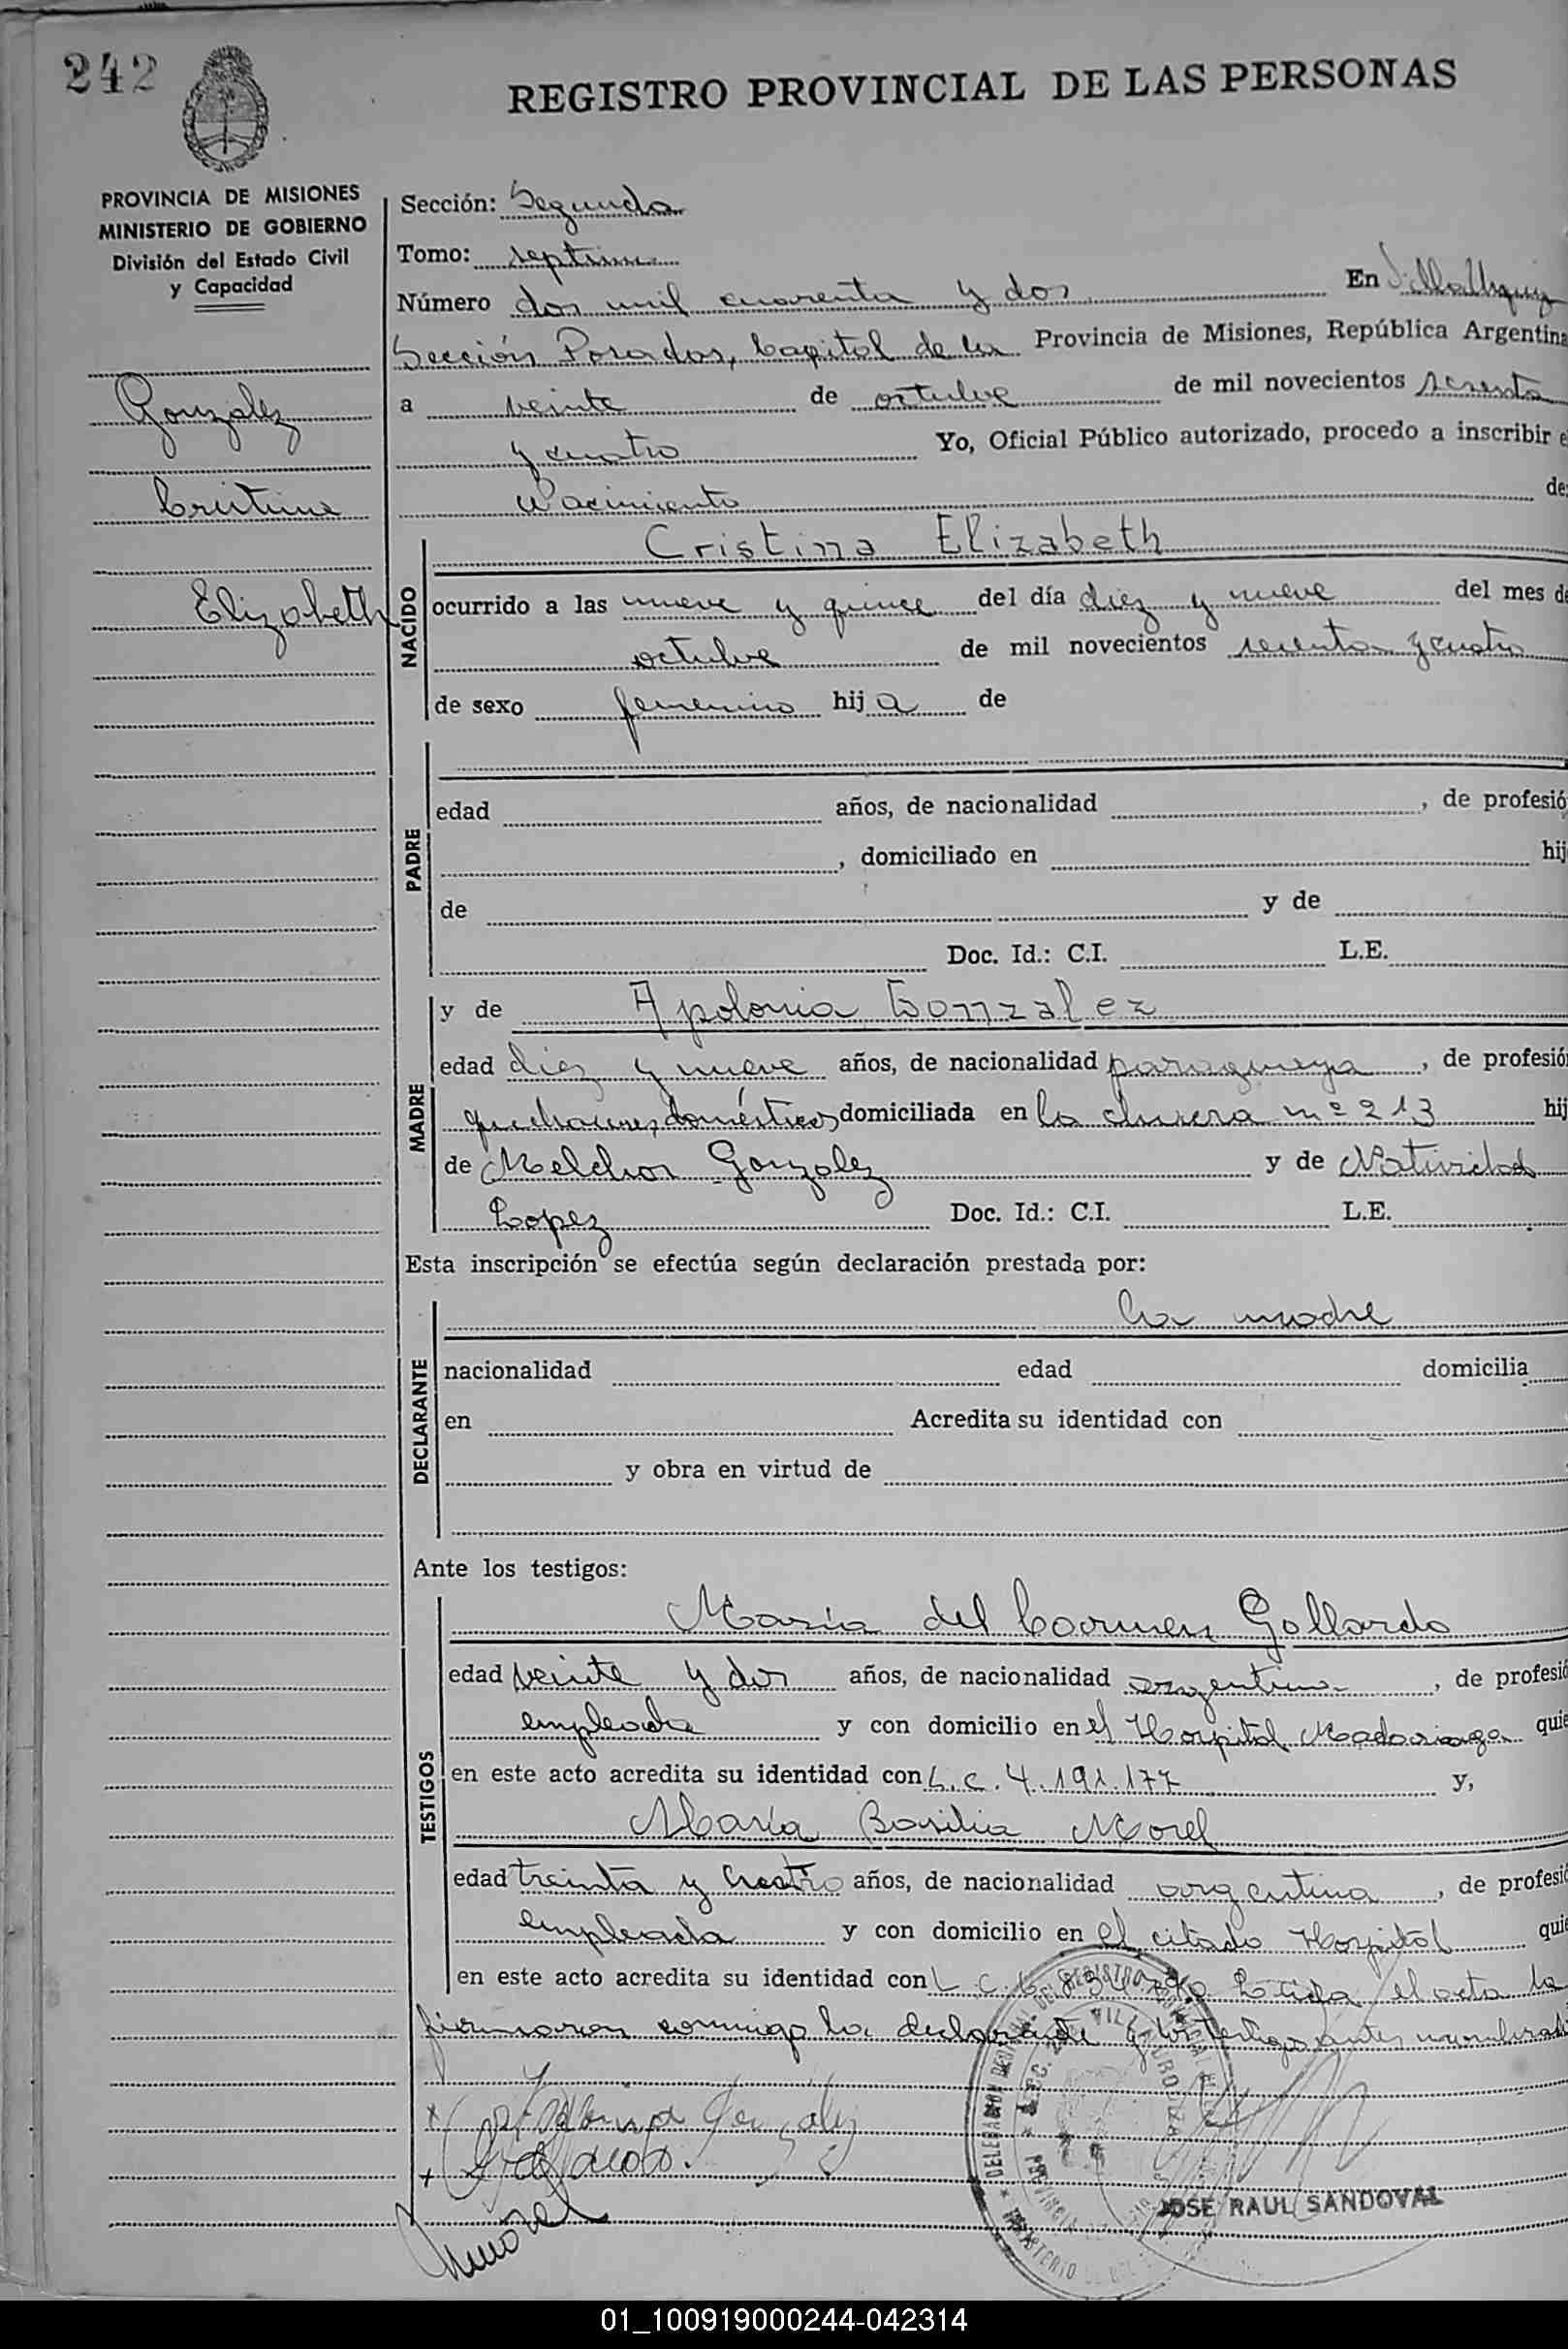 242
REGISTRO PROVINCIAL DE LAS PERSONAS
PROVINCIA DE MISIONES
MINISTERIO DE GOBIERNO
División del Estado Civil
y Capacidad
Gonzalez
Cristina
Elizabeth
Sección: Segunda
Tomo: septimo
Número dos mil cuarenta y dos En Villa Urquiza
Sección Posadas, Capital de la Provincia de Misiones, República Argentina
a veinte de octubre de mil novecientos sesenta
y cuatro Yo, Oficial Público autorizado, procedo a inscribir e
Nacimiento de
NACIDO
Cristina Elizabeth
ocurrido a las nueve y quince del día diez y nueve del mes de
octubre de mil novecientos sesenta y cuatro
de sexo femenino hija de
PADRE
edad años, de nacionalidad , de profesió
, domiciliado en hij
de y de
Doc. Id.: C.I. L.E.
MADRE
y de Apolonia Gonzalez
edad diez y nueve años, de nacionalidad paraguaya , de profesió
quehaceres domésticos domiciliada en la chacra nº 213 hij
de Melchor Gonzalez y de Natividad
Lopez Doc. Id.: C.I. L.E.
Esta inscripción se efectúa según declaración prestada por:
DECLARANTE
la madre
nacionalidad edad domicilia
en Acredita su identidad con
y obra en virtud de
Ante los testigos:
TESTIGOS
María del Carmen Gallardo
edad veinte y dos años, de nacionalidad argentina , de profesió
empleada y con domicilio en el Hospital Madariaga quie
en este acto acredita su identidad con L.C. 4.191.177 y,
María Basilia Morel
edad treinta y cuatro años, de nacionalidad argentina , de profesió
empleada y con domicilio en el citado Hospital quie
en este acto acredita su identidad con L.C. Leida el acta la
firmaron conmigo la declarante y los testigos antes nombrad
Apolonia Gonzalez
Gallardo.
Morel
JOSE RAUL SANDOVAL
01_100919000244-042314